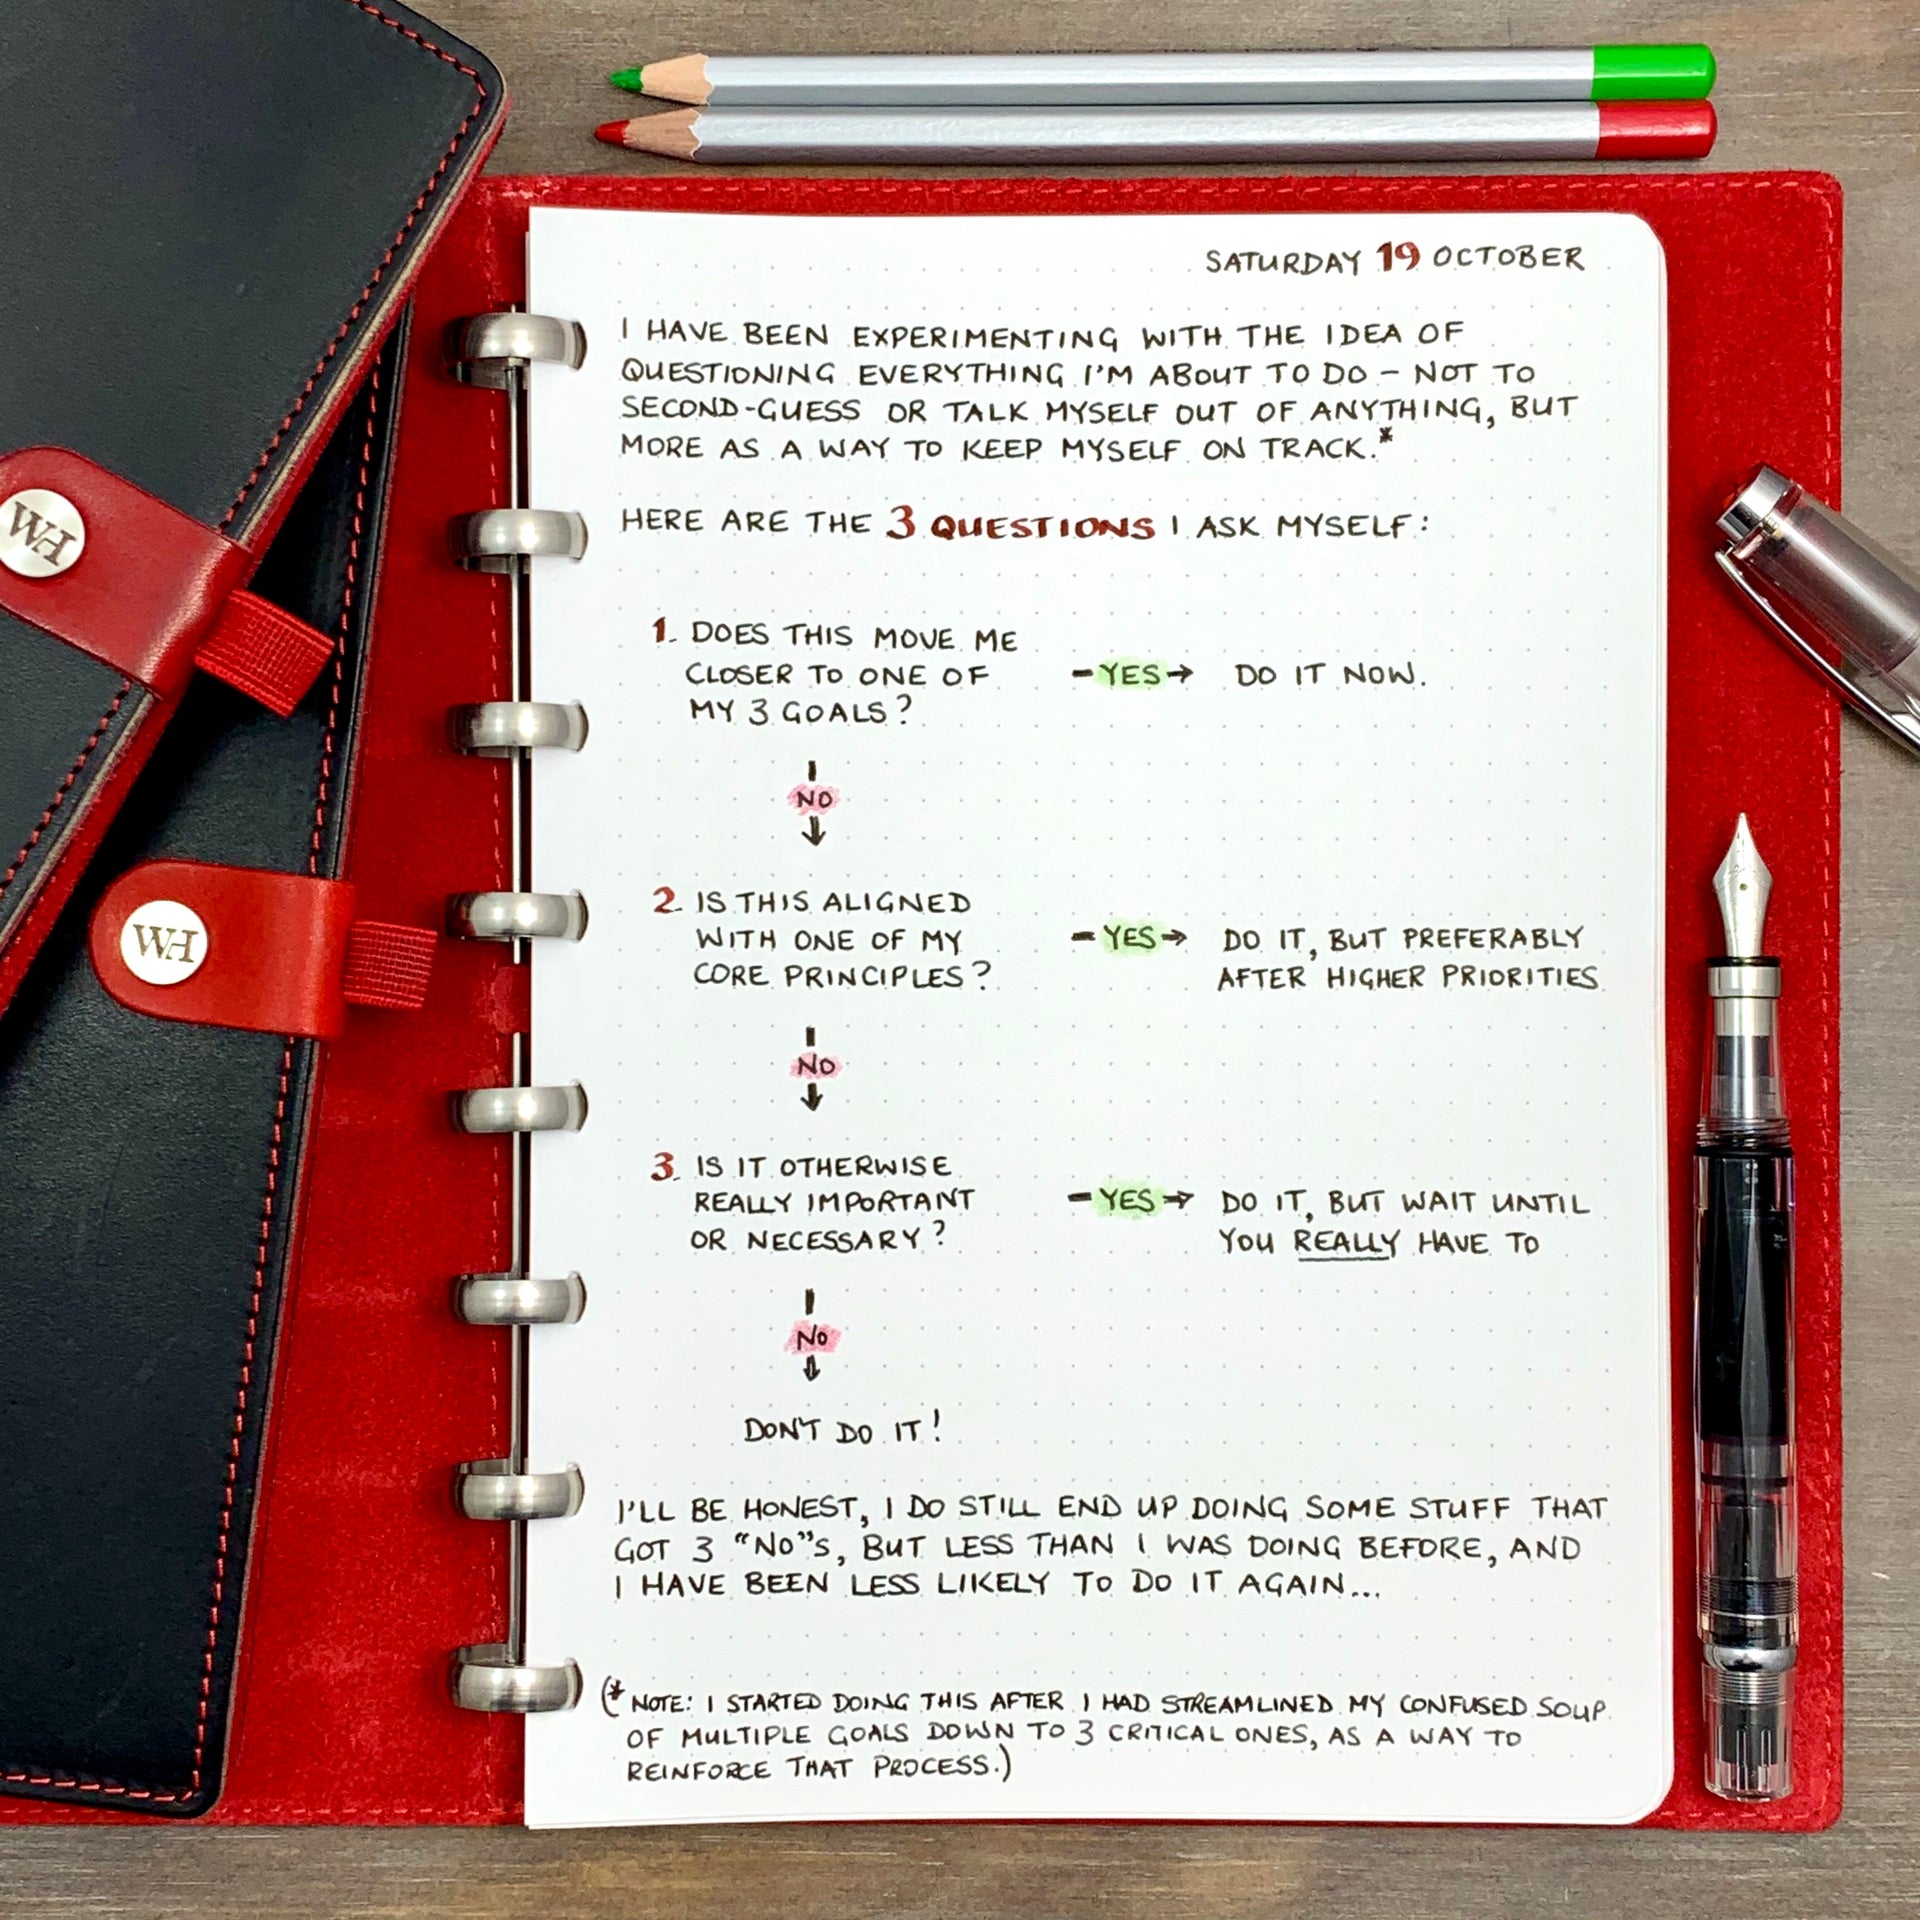 SATURDAY 19 OCTOBER
I HAVE BEEN EXPERIMENTING WITH THE IDEA OF
QUESTIONING EVERYTHING I'M ABOUT TO DO – NOT TO
SECOND-GUESS OR TALK MYSELF OUT OF ANYTHING, BUT
MORE AS A WAY TO KEEP MYSELF ON TRACK.*
HERE ARE THE 3 QUESTIONS I ASK MYSELF:
1. DOES THIS MOVE ME
CLOSER TO ONE OF
MY 3 GOALS?
YES → DO IT NOW.
NO
2. IS THIS ALIGNED
WITH ONE OF MY
CORE PRINCIPLES?
YES → DO IT, BUT PREFERABLY
AFTER HIGHER PRIORITIES
NO
3. IS IT OTHERWISE
REALLY IMPORTANT
OR NECESSARY?
YES → DO IT, BUT WAIT UNTIL
YOU REALLY HAVE TO
NO
DON'T DO IT!
I'LL BE HONEST, I DO STILL END UP DOING SOME STUFF THAT
GOT 3 "NO"S, BUT LESS THAN I WAS DOING BEFORE, AND
I HAVE BEEN LESS LIKELY TO DO IT AGAIN...
(* NOTE: I STARTED DOING THIS AFTER I HAD STREAMLINED MY CONFUSED SOUP
OF MULTIPLE GOALS DOWN TO 3 CRITICAL ONES, AS A WAY TO
REINFORCE THAT PROCESS.)
WH
WH